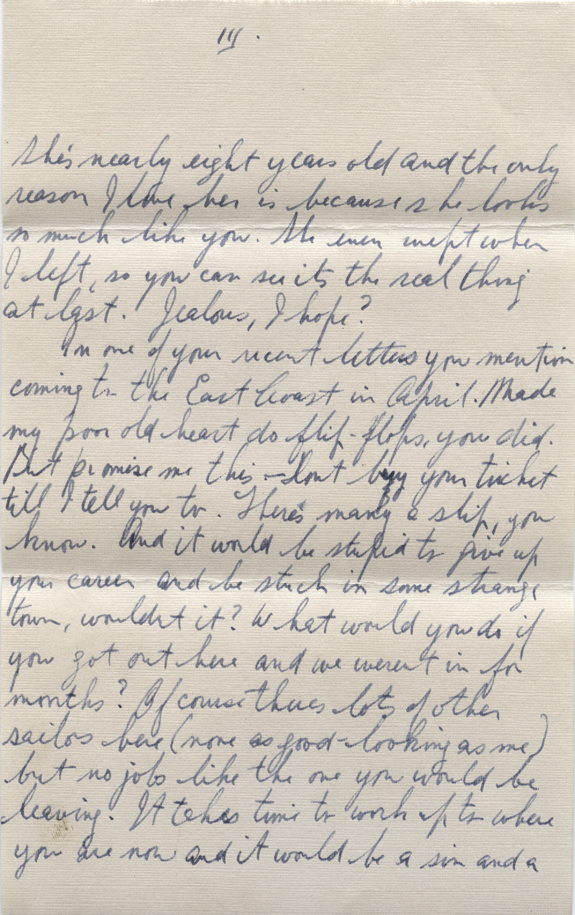 III.
She's nearly eight years old and the only
reason I love her is because she looks
so much like you. She even wept when
I left, so you can see its the real thing
at last. Jealous, I hope?
In one of your recent letters you mention
coming to the East Coast in April. Made
my poor old heart do flip-flops, you did.
But promise me this - dont buy your ticket
till I tell you to. There's many a slip, you
know. And it would be stupid to give up
your career and be stuck in some strange
town, wouldn't it? What would you do if
you got out here and we weren't in for
months? Of course theres lots of other
sailors here (none as good-looking as me)
but no jobs like the one you would be
leaving. It takes time to work up to where
you are now and it would be a sin and a